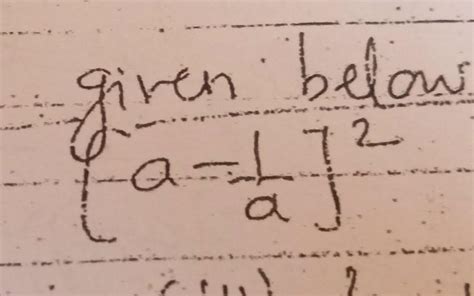 given below
[a - 1/a]²